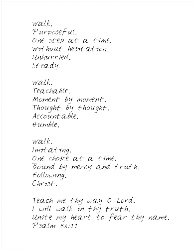 Walk.
Purposeful.
One step at a time.
Without hesitation.
Unhurried.
Steady.
Walk.
Teachable.
Moment by moment.
Thought by thought.
Accountable.
Humble.
Walk.
Imitating.
One choice at a time.
Bound by mercy and truth
Following.
Christ.
Teach me thy way O Lord.
I will walk in thy truth.
Unite my heart to fear thy name.
Psalm 86:11